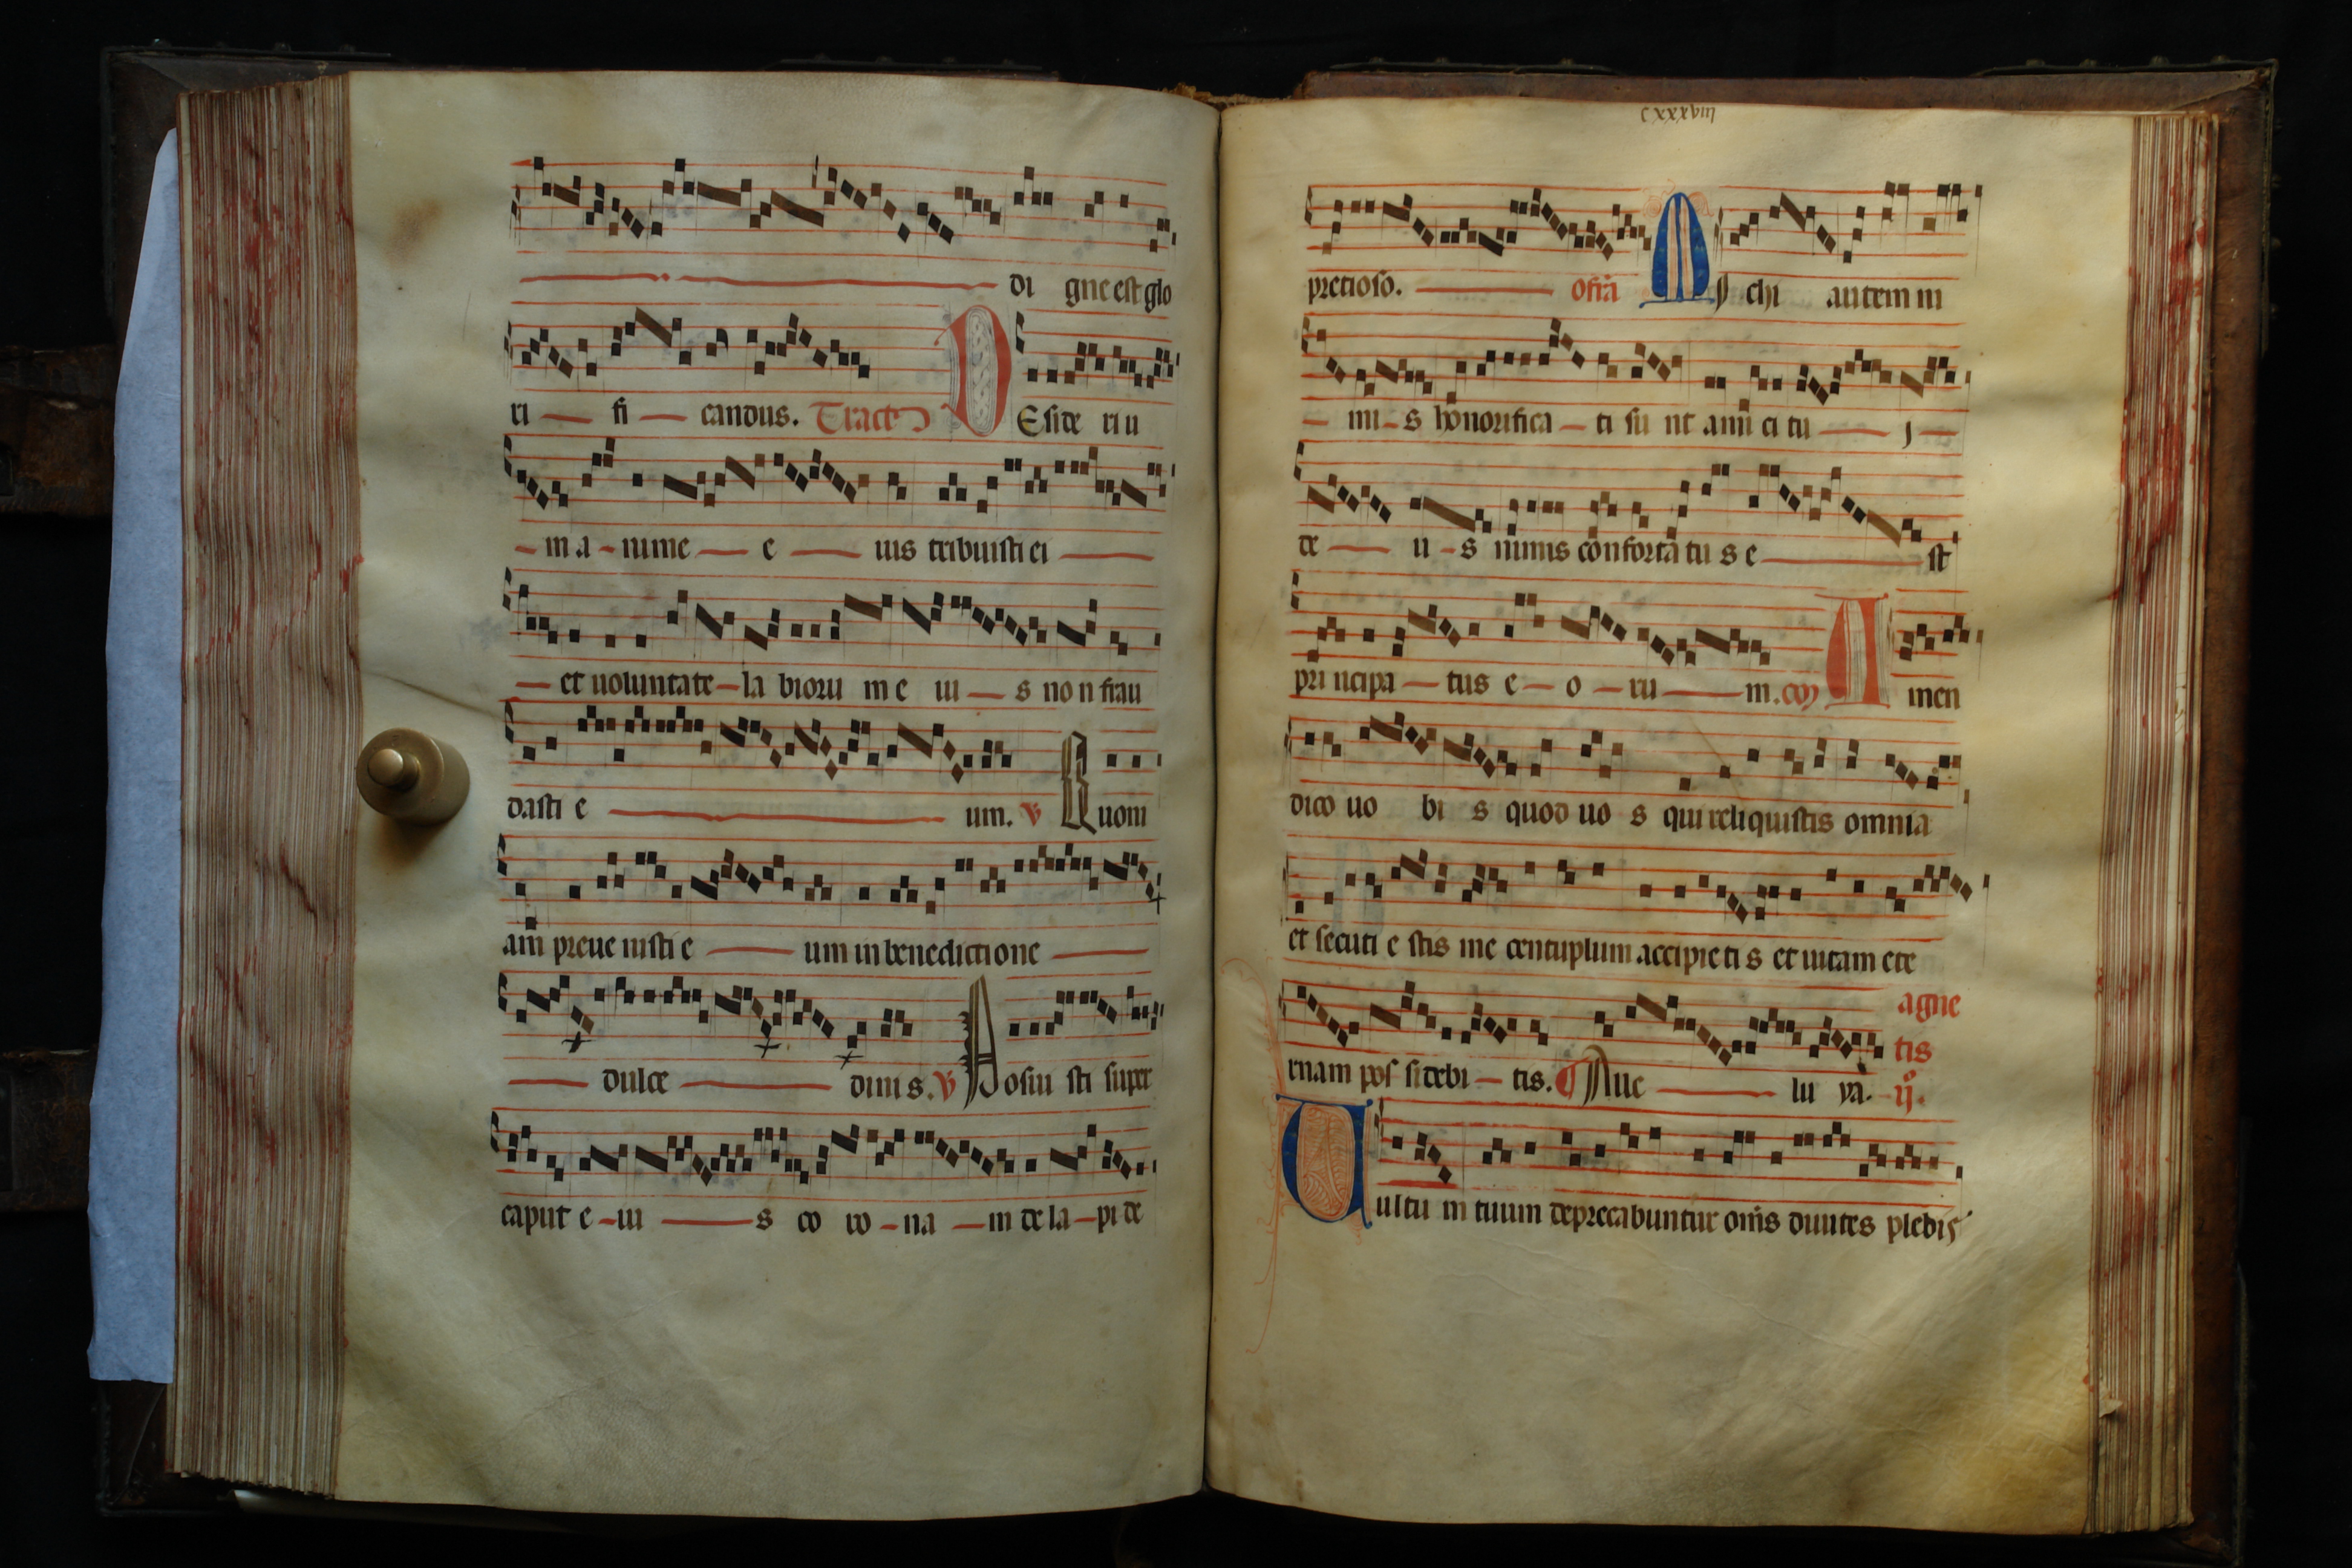 di gne est glo
ri fi candus. Tract9 D Eside riu
m a nime e ius tribuisti ei
et uoluntate la bioru m e iu s no n frau
dasti e um. V Q uoni
am preue nisti e um in benedictione
dulce dinis. V P osui sti super
caput e iu s co ro na m de la pi de
cxxxviii
pretioso. M ychi autem ni
mi s honorifica ti su nt ami ci tu j
de u s nimis confortatu s e st
pri ncipa tus e o ru m. A men
dico uo bi s quod uo s qui reliquistis omnia
et secuti e stis me centuplum accipieti s et uitam ete
agne
tis
rnam pos sidebi tis. Aue lu ya.
U ultu m tuum deprecabuntur omīs diuites plebis